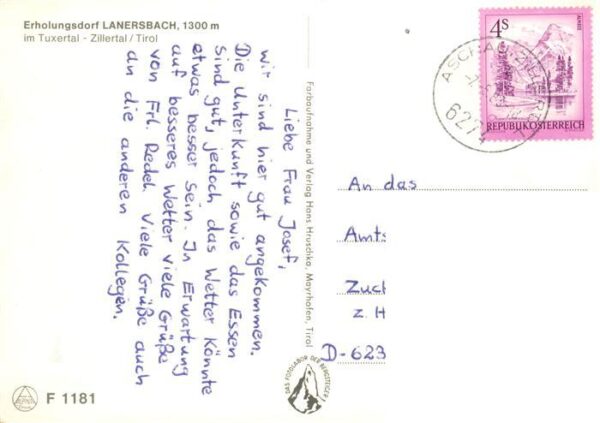 Erholungsdorf LANERSBACH, 1300 m
im Tuxertal - Zillertal / Tirol
Liebe Frau Josef,
wir sind hier gut angekommen.
Die Unterkunft sowie das Essen
sind gut, jedoch das Wetter könnte
etwas besser sein. In Erwartung
auf besseres Wetter viele Grüße
von Frl. Redel. Viele Grüße auch
an die anderen Kollegen.
F 1181
Farbaufnahme und Verlag Hans Hruschka, Mayrhofen, Tirol
DAS FOTOLABOR DER BERGSTEIGER
4S
ALMSEE
REPUBLIK ÖSTERREICH
6274
An das
Amt
Zuch
z. H
D-623